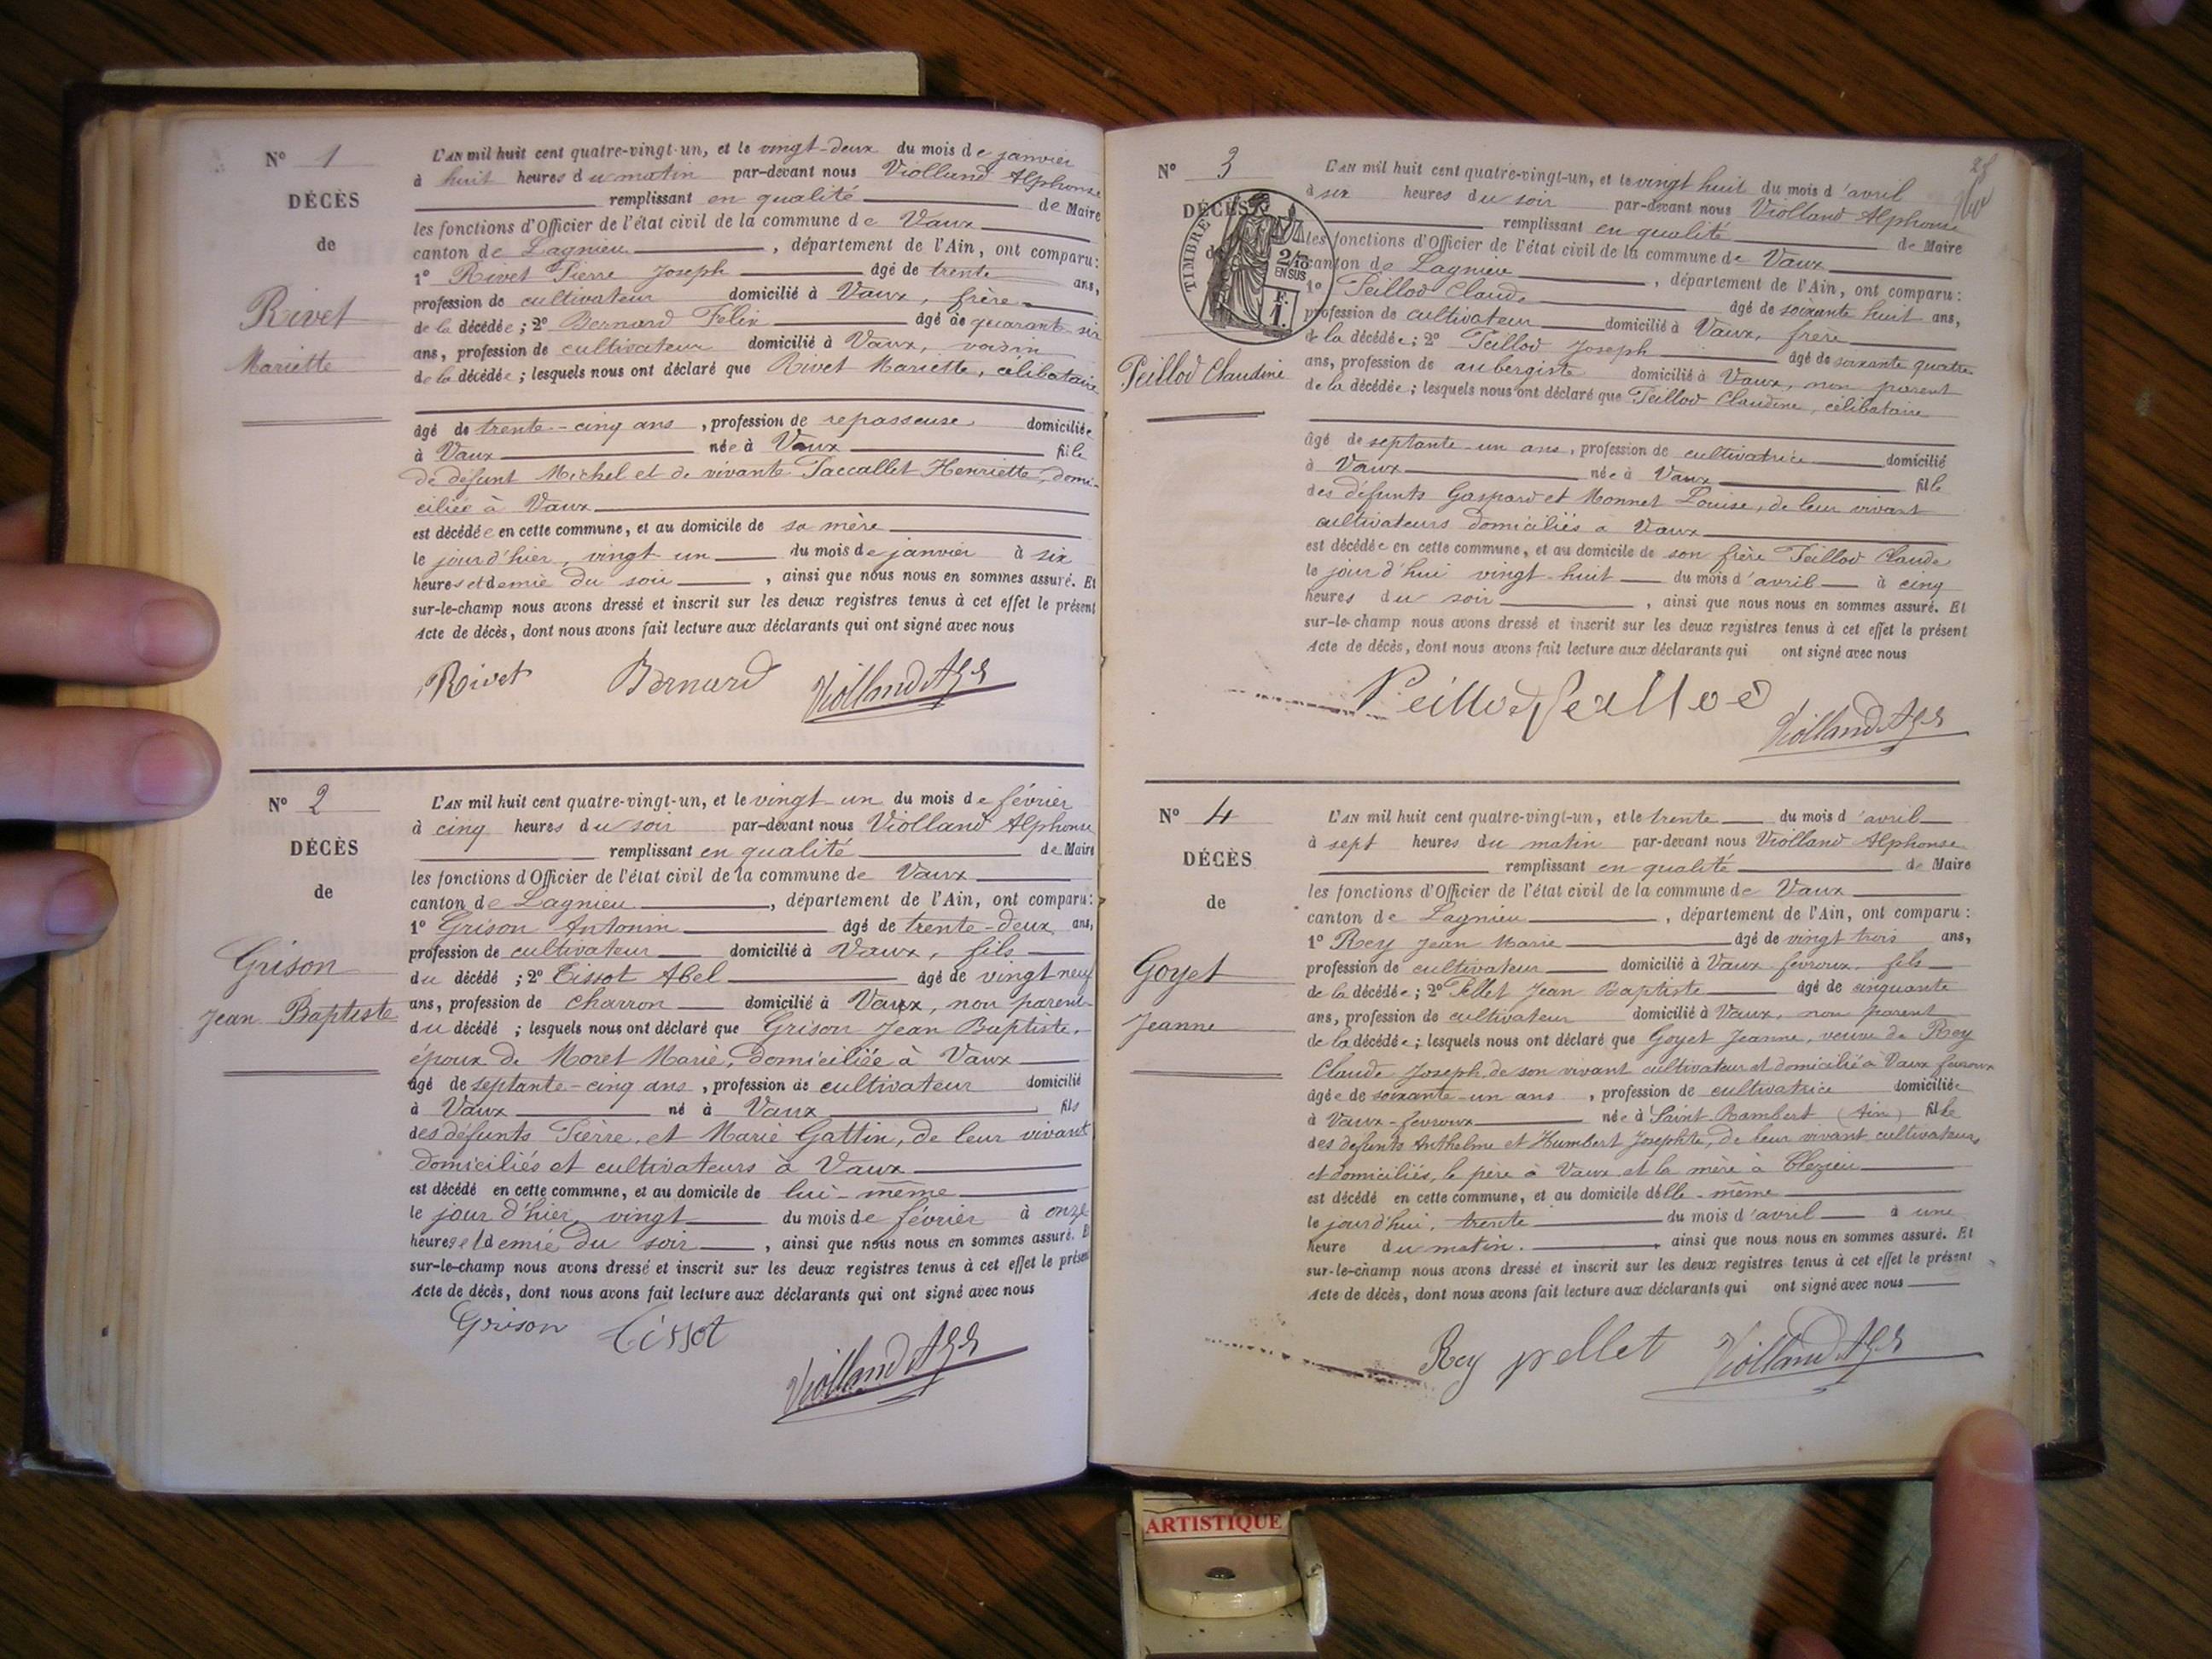 N° 1
DÉCÈS
de
Rivet
Mariette
L'AN mil huit cent quatre-vingt-un, et le vingt-deux du mois de janvier
à huit heures du matin par-devant nous Violland Alphonse
remplissant en qualité de Maire
les fonctions d'Officier de l'état civil de la commune de Vaux
canton de Lagnieu, département de l'Ain, ont comparu:
1° Rivet Pierre Joseph âgé de trente ans,
profession de cultivateur domicilié à Vaux, frère
de la décédée; 2° Bernard Felix âgé de quarante six
ans, profession de cultivateur domicilié à Vaux, voisin
de la décédée; lesquels nous ont déclaré que Rivet Mariette, célibataire
âgé de trente-cinq ans, profession de repasseuse domiciliée
à Vaux née à Vaux fille
de défunt Michel et de vivante Paccallet Henriette, domi-
ciliée à Vaux
est décédée en cette commune, et au domicile de sa mère
le jour d'hier, vingt un du mois de janvier à six
heures et demie du soir, ainsi que nous nous en sommes assuré. Et
sur-le-champ nous avons dressé et inscrit sur les deux registres tenus à cet effet le présent
Acte de décès, dont nous avons fait lecture aux déclarants qui ont signé avec nous
Rivet Bernard Violland
N° 2
DÉCÈS
de
Grison
Jean Baptiste
L'AN mil huit cent quatre-vingt-un, et le vingt-un du mois de février
à cinq heures du soir par-devant nous Violland Alphonse
remplissant en qualité de Maire
les fonctions d'Officier de l'état civil de la commune de Vaux
canton de Lagnieu, département de l'Ain, ont comparu:
1° Grison Antonin âgé de trente-deux ans,
profession de cultivateur domicilié à Vaux, fils
du décédé; 2° Tissot Abel âgé de vingt neuf
ans, profession de charron domicilié à Vaux, non parent
du décédé; lesquels nous ont déclaré que Grison Jean Baptiste,
époux de Moret Marie, domiciliée à Vaux
âgé de septante-cinq ans, profession de cultivateur domicilié
à Vaux né à Vaux fils
des défunts Pierre, et Marie Gattin, de leur vivant
domiciliés et cultivateurs à Vaux
est décédé en cette commune, et au domicile de lui-même
le jour d'hier, vingt du mois de février à onze
heures et demie du soir, ainsi que nous nous en sommes assuré. E
sur-le-champ nous avons dressé et inscrit sur les deux registres tenus à cet effet le présent
Acte de décès, dont nous avons fait lecture aux déclarants qui ont signé avec nous
Grison Tissot
Violland
28
N° 3
DÉCÈS
TIMBRE
2/10
EN SUS
F.
1.
Peillod Claudine
L'AN mil huit cent quatre-vingt-un, et le vingt huit du mois d'avril
à six heures du soir par-devant nous Violland Alphonse
remplissant en qualité de Maire
les fonctions d'Officier de l'état civil de la commune de Vaux
canton de Lagnieu, département de l'Ain, ont comparu:
1° Peillod Claude âgé de soixante huit ans,
profession de cultivateur domicilié à Vaux, frère
de la décédée; 2° Peillod Joseph âgé de soixante quatre
ans, profession de aubergiste domicilié à Vaux, non parent
de la décédée; lesquels nous ont déclaré que Peillod Claudine, célibataire
âgé de septante-un ans, profession de cultivatrice domicilié
à Vaux née à Vaux fille
des défunts Gaspard et Monnet Louise, de leur vivant
cultivateurs domiciliés à Vaux
est décédée en cette commune, et au domicile de son frère Peillod Claude
le jour d'hui vingt-huit du mois d'avril à cinq
heures du soir, ainsi que nous nous en sommes assuré. Et
sur-le-champ nous avons dressé et inscrit sur les deux registres tenus à cet effet le présent
Acte de décès, dont nous avons fait lecture aux déclarants qui ont signé avec nous
Peillod Peillod
Violland
N° 4
DÉCÈS
de
Goyet
Jeanne
L'AN mil huit cent quatre-vingt-un, et le trente du mois d'avril
à sept heures du matin par-devant nous Violland Alphonse
remplissant en qualité de Maire
les fonctions d'Officier de l'état civil de la commune de Vaux
canton de Lagnieu, département de l'Ain, ont comparu:
1° Rey Jean Marie âgé de vingt trois ans,
profession de cultivateur domicilié à Vaux févroux fils
de la décédée; 2° Pellet Jean Baptiste âgé de cinquante
ans, profession de cultivateur domicilié à Vaux, non parent
de la décédée; lesquels nous ont déclaré que Goyet Jeanne, veuve de Rey
Claude Joseph, de son vivant cultivateur et domicilié à Vaux févroux
âgée de soixante-un ans, profession de cultivatrice domiciliée
à Vaux-févroux née à Saint-Rambert (Ain) fille
des défunts Anthelme et Humbert Josephte, de leur vivant cultivateurs
et domiciliés, le père à Vaux et la mère à Cleyzieu
est décédé en cette commune, et au domicile d'elle-même
le jourd'hui, trente du mois d'avril à une
heure du matin, ainsi que nous nous en sommes assuré. Et
sur-le-champ nous avons dressé et inscrit sur les deux registres tenus à cet effet le présent
Acte de décès, dont nous avons fait lecture aux déclarants qui ont signé avec nous
Rey pellet Violland
ARTISTIQUE